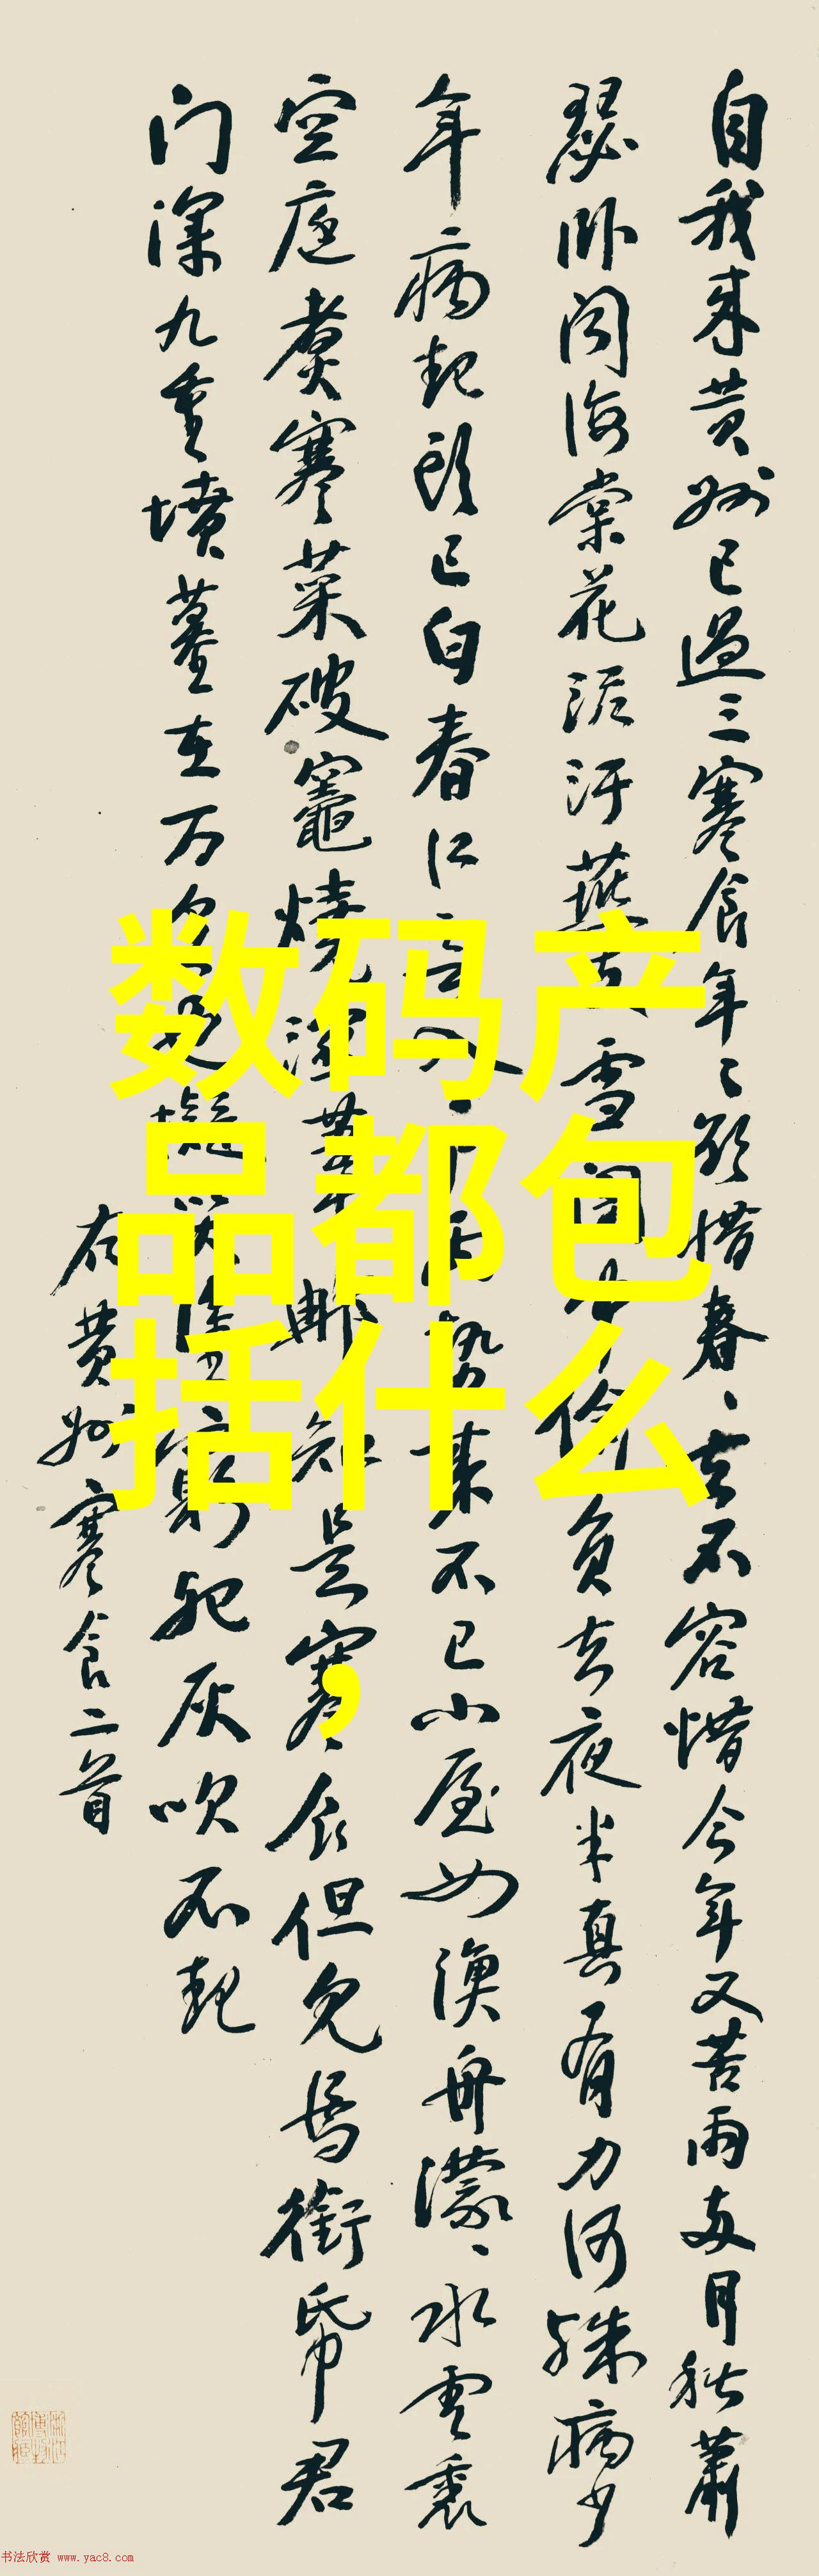 自我来黄州已過三寒食年々欲惜春々去不容惜今年又苦雨两月秋蕭
瑟卧闻海棠花泥汙燕支雪闇中偷負去夜半真有力何殊病少
年病起头已白春江入户雨势来不已小屋如渔舟濛々水雲裏
空庖煮寒菜破竈燒湿葦那知是寒食但見烏銜帋君
门深九重墳墓在万里也擬哭途窮死灰吹不起
右黄州寒食二首
数码产
品都包
括什么
,
书法欣赏 www.yac8.com